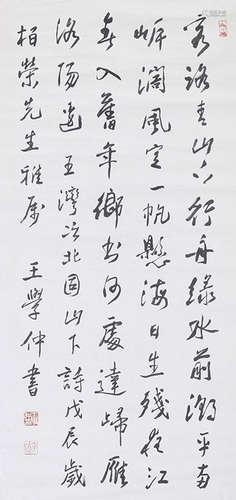 客路青山下行舟綠水前潮平兩
岸濶風正一帆懸海日生殘夜江
春入舊年鄉書何處達歸雁
洛陽邊 王灣次北固山下詩戊辰歲
柏榮先生雅屬 王學仲書